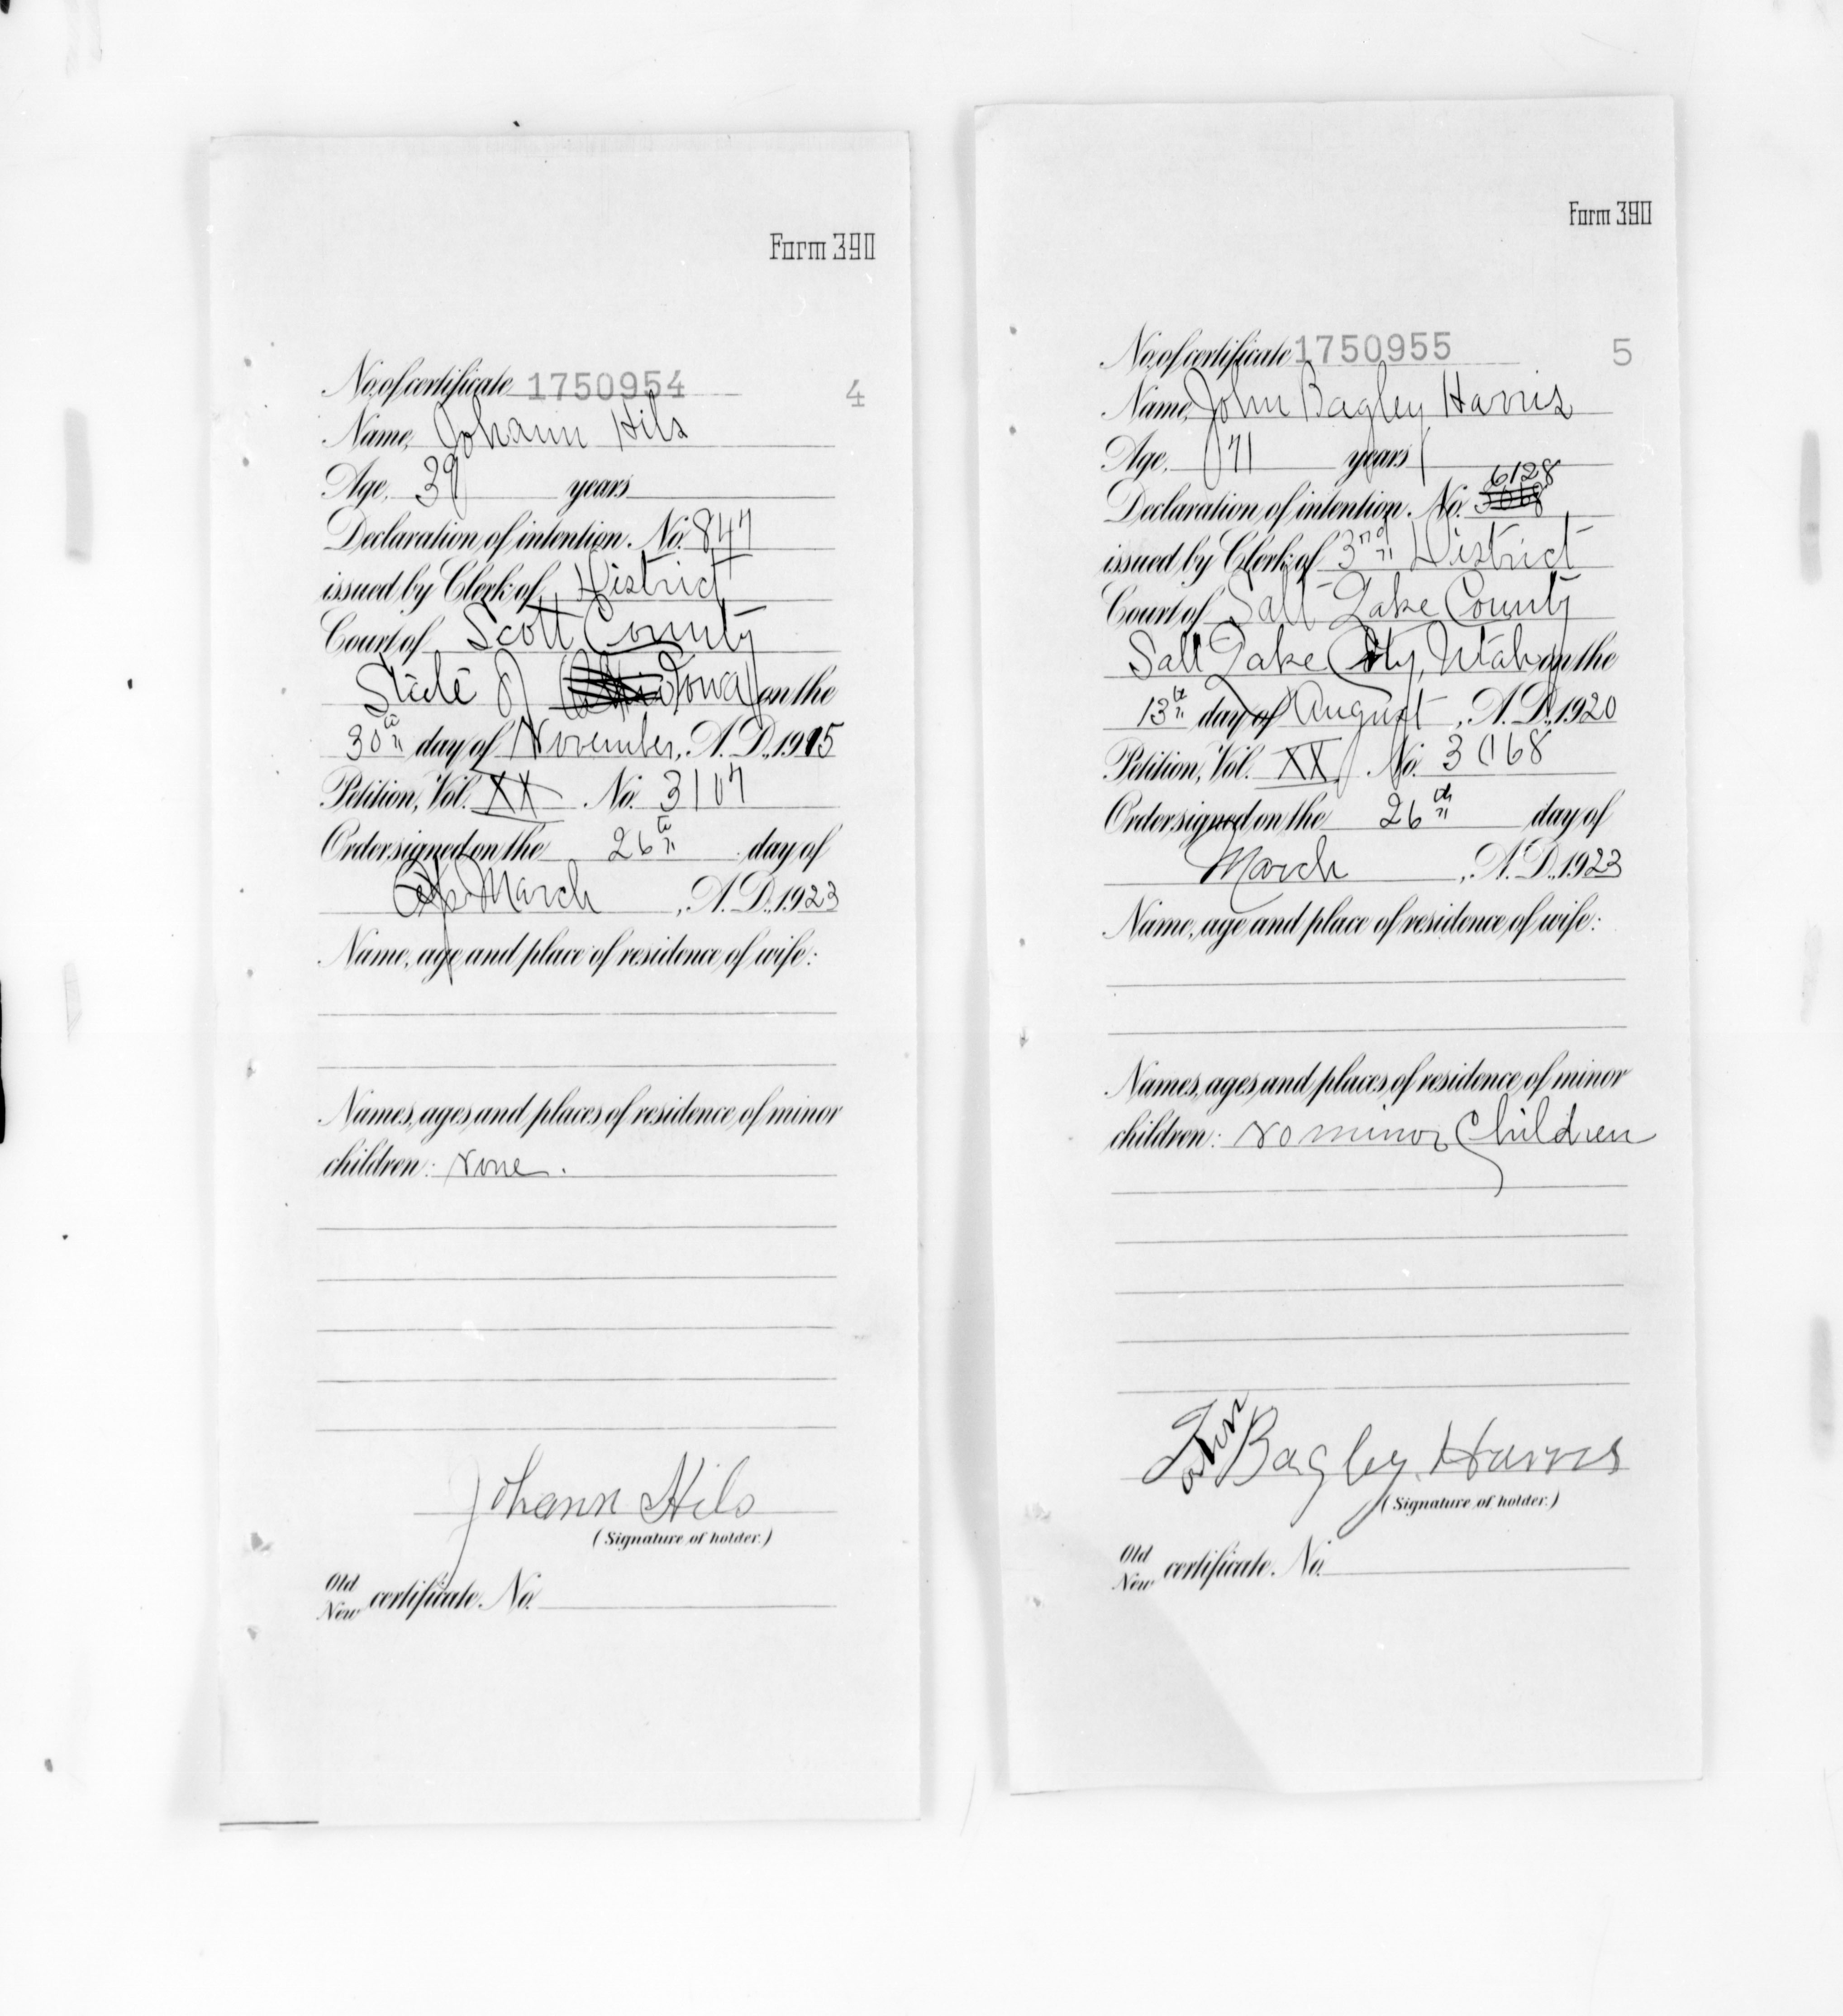 Form 390
No. of certificate 1750954 4
Name, Johann Hils
Age, 39 years
Declaration of intention. No. 847
issued by Clerk of District
Court of Scott County
State of Iowa on the
30th day of November, A. D., 1915
Petition, Vol. XX No. 3107
Order signed on the 26th day of
March, A. D., 1923
Name, age and place of residence of wife:
Names, ages and places of residence of minor
children: None.
Johann Hils
(Signature of holder.)
Old
New certificate. No.
Form 390
No. of certificate 1750955 5
Name, John Bagley Harris
Age, 71 years
6128
Declaration of intention. No. 3068
issued by Clerk of 3rd District
Court of Salt Lake County
Salt Lake City, Utah on the
13th day of August, A. D., 1920
Petition, Vol. XX No. 3068
Order signed on the 26th day of
March, A. D., 1923
Name, age and place of residence of wife:
Names, ages and places of residence of minor
children: No minor Children
John Bagley Harris
(Signature of holder.)
Old
New certificate. No.